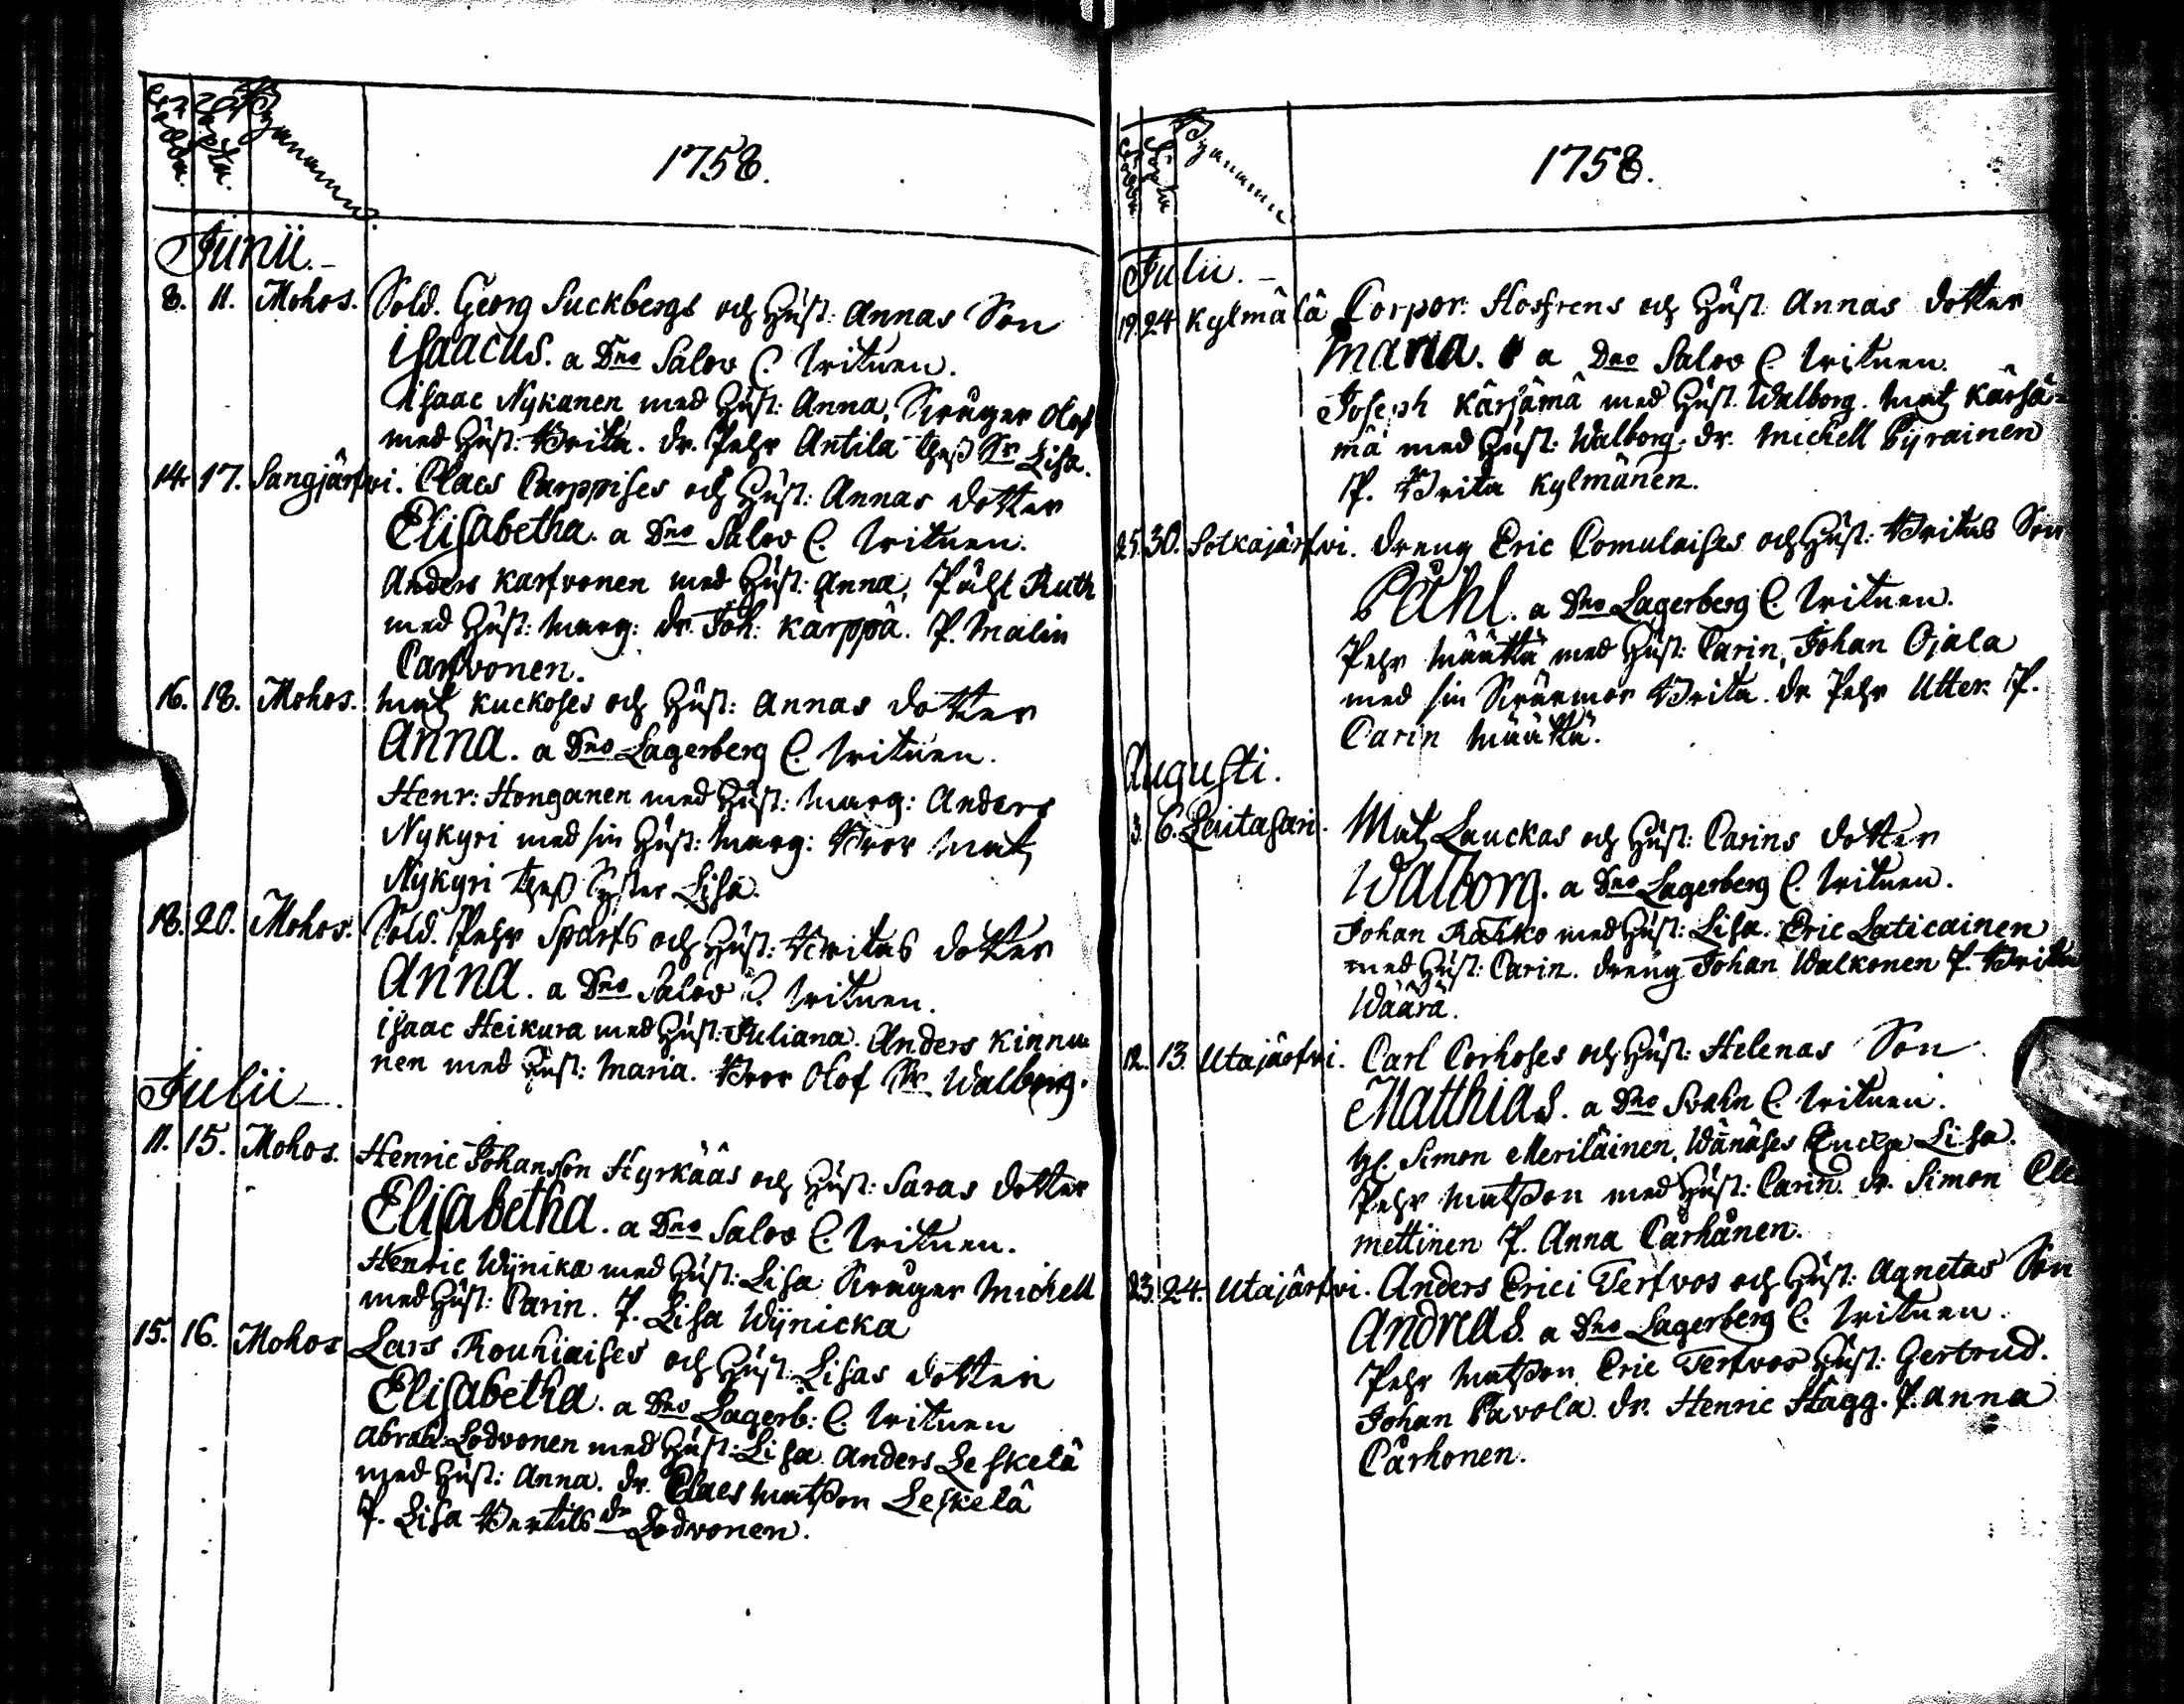 Födda. Döpta. Bynamn.
1758.
Junii.
8. 11. Mohos. Sold. Georg Suckbergs och Hust: Annas Son
Isaacus. a Dno Salov C. Crituen.
Isaac Nykanen med Hust: Anna, Swåger Olof
med Hust: Brita. dr. Pehr Antila thess Sr Lisa.
14. 17. Sangjärfwi. Claes Carppises och Hust: Annas dotter
Elisabetha. a Dno Salov C. Crituen.
Anders Karfvonen med Hust: Anna, Påhl Ruth
med Hust: Marg: dr. Joh: Karppä. P. Malin
Carfvonen.
16. 18. Mohos. Matz Kuckoses och Hust: Annas dotter
Anna. a Dno Lagerberg C. Crituen.
Henr: Honganen med Hust: Marg: Anders
Nykyri med sin Hust: Marg: Bror Matz
Nykyri thess Syster Lisa.
18. 20. Mohos. Sold. Pehr Sparfs och Hust: Britas dotter
Anna. a Dno Salov C. Crituen.
Isaac Heikura med Hust: Juliana. Anders Kinnu
nen med Hust: Maria. Bror Olof Sr Walborg.
Julii
11. 15. Mohos. Henric Johansson Hyrkääs och Hust: Saras dotter
Elisabetha. a Dno Salov C. Crituen.
Henric Wijnika med Hust: Lisa Swåger Michell
med Hust: Carin. P. Lisa Wijnicka
15. 16. Mohos Lars Rouhiaises och Hust: Lisas dotter
Elisabetha. a Dno Lagerb: C. Crituen
Abrah: Lodvonen med Hust: Lisa. Anders Leskelä
med Hust: Anna. dr. Claes Matsson Leskelä
P. Lisa Bertils dr Lodvonen.
Födda Döpta Bynamn
1758.
Julii.
19. 24 Kylmälä Corpor. Hosfrens och Hust. Annas dotter
Maria. a Dno Salov C. Crituen.
Joseph Kärsämä med Hust. Walborg. Matz Kärsä=
mä med Hust: Walborg. dr. Michell Pyrainen
P. Brita Kylmänen.
25. 30. Sotkajärfwi. dreng Eric Comulaises och Hust: Britas Son
Påhl. a Dno Lagerberg C. Crituen.
Pehr Määttä med Hust: Carin, Johan Ojala
med sin Swärmor Brita. dr Pehr Utter. P.
Carin Määttä.
Augusti.
3. 6. Leutasari. Matz Lauckas och Hust: Carins dotter
Walborg. a Dno Lagerberg C. Crituen.
Johan Ratiko med Hust: Lisa. Eric Laticainen
med Hust: Carin. dreng Johan Walkonen P. Brita
Wäärä.
12. 13. Utajärfwi. Carl Corhoses och Hust: Helenas Son
Matthias. a Dno Svahn C. Crituen.
Simon Meriläinen, Wänäses Encka Lisa.
Pehr Matsson med Hust: Carin. dr. Simon Cle
mettinen P. Anna Cärhänen.
23. 24. Utajärfwi. Anders Erici Terfvos och Hust: Agnetas Son
Andreas. a Dno Lagerberg C. Crituen.
Pehr Matsson, Eric Terfvos Hust: Gertrud.
Johan Pavola. dr. Henric Hägg. P. Anna
Cärhonen.